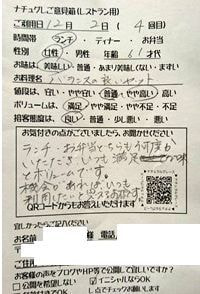 ナチュクレご意見箱(レストラン用)
ご利用日 12月 2日 ( 4回目)
時間帯 ランチ・ディナー・お弁当
女性・男性 年齢 61才代
お味は 美味しい・普通・あまり美味しくない・まずい
お料理名 バランスの良いセット
値段は、安い・やや安い・普通・やや高い・高い
ボリュームは、満足・やや満足・やや不足・不足
接客態度は、良い・普通・少し悪い・悪い
お気付きの点がございましたら、お聞かせください
ランチ・お弁当どちらも何度も
いただき いつも満足
とボリュームです。
機会があれば、いつも
利用
QRコードからもお答えいただけます
宜しかったらご記入
お名前 電話
ご住所
お客様の声をブログやHP等で公開して宜しいですか?
公開を希望しない イニシャルならOK
でOK